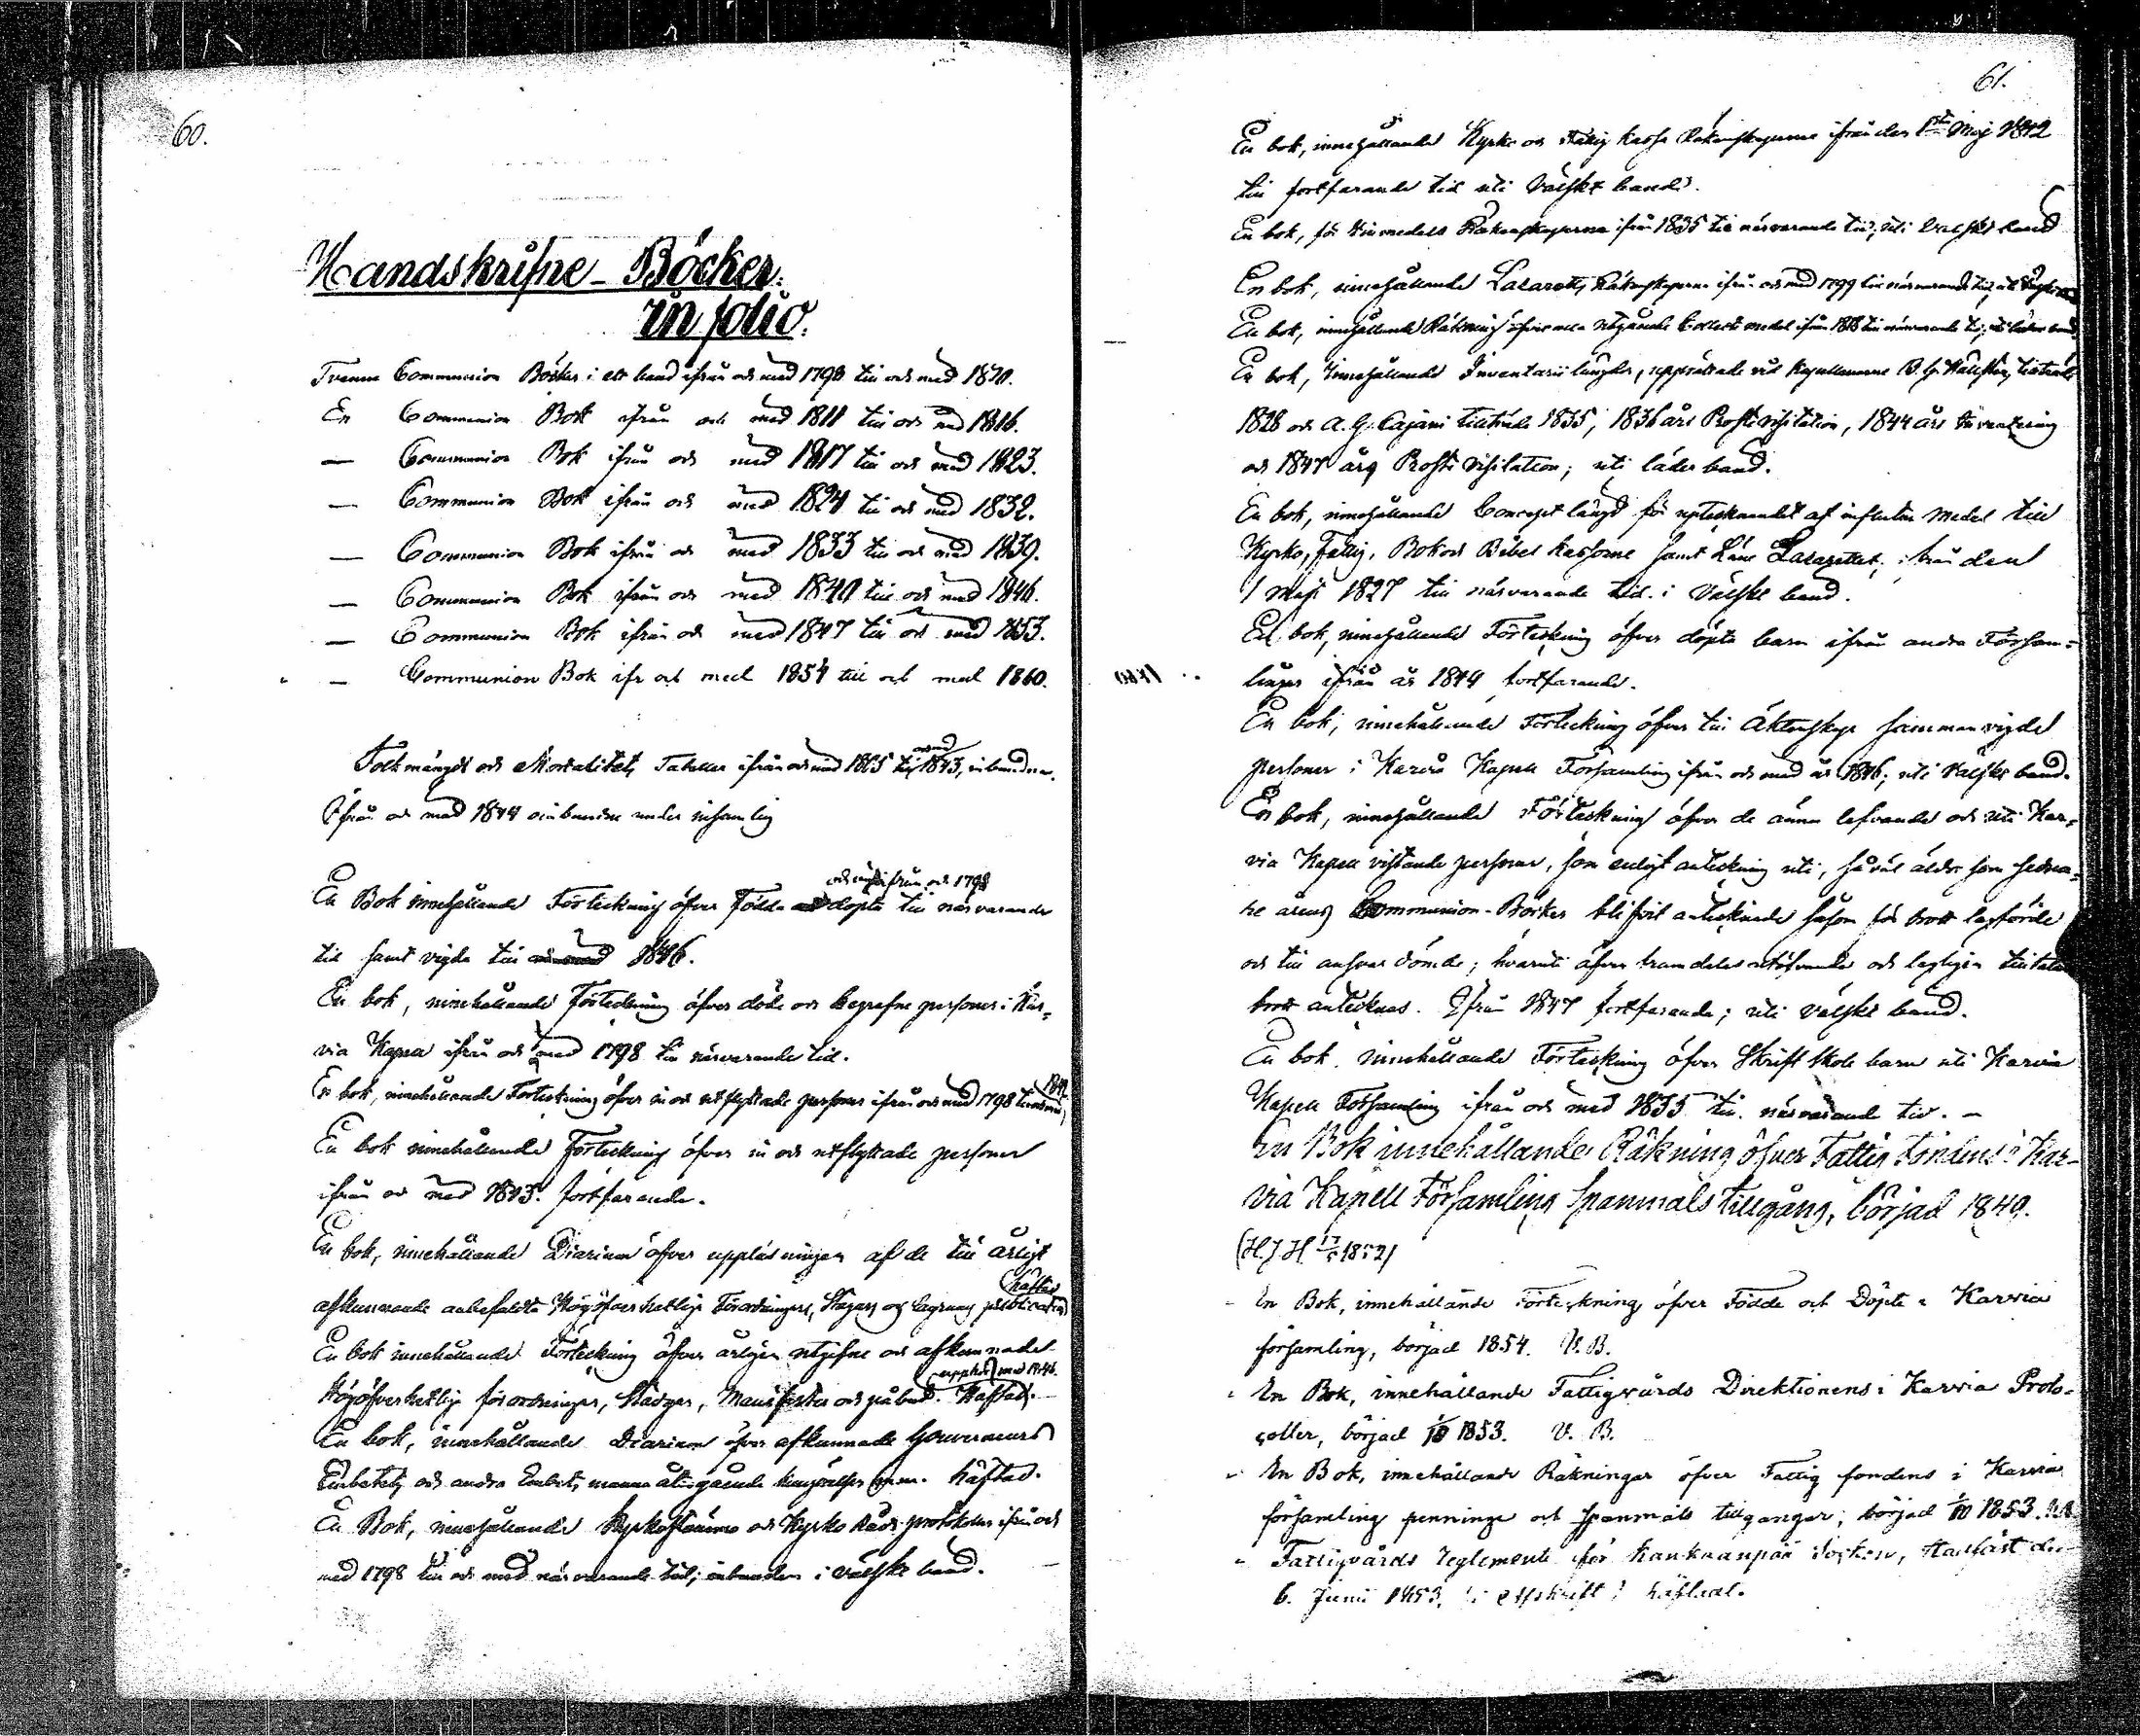 60.
Handskrifne - Böcker.
in folio.
Tvenne Communion Böcker i ett band ifrån och med 1798 till och med 1810.
En Communion Bok ifrån och med 1811 till och med 1816.
— Communion Bok ifrån och med 1817 till och med 1823.
— Communion Bok ifrån och med 1824 till och med 1832.
— Communion Bok ifrån och med 1833 till och med 1839.
— Communion Bok ifrån och med 1840 till och med 1846.
— Communion Bok ifrån och med 1847 till och med 1853.
— Communion Bok ifr och med 1854 till och med 1860.
Folkmängds och Mortalitets Tabeller ifrån och med 1805 till och med 1843, inbundna.
Ifrån och med 1844 oinbundne under insamling
och vigde ifrån och 1798
En Bok innehållande Förteckning öfver födde och döpta till närvarande
tid samt vigde till 1846.
En bok, innehållande Förteckning öfver döde och begrafne personer i Kar=
via Kapell ifrån och med 1798 till närvarande tid.
En bok, innehållande Förteckning öfver in och utflyttade personer ifrån och med 1798 till
En bok innehållande Förteckning öfver in och utflyttade personer
ifrån och med 1843. fortfarande.
En bok, innehållande Diarium öfver uppläsningen af de till årligt
häftad
afkunnande anbefaldta Högöfverhetlige Förordningar, Stadgar och
En bok innehållande Förteckning öfver årligen utgifne och afkunnade
upphört med 1846.
Högöfverhetlige förordningar, Stadgar, Manifester och påbud. Häftad.
En bok, innehållande Diarium öfver afkunnade Gouverneurs
Embetets och andra Embets manna åtgående kungörelser m.m. häftad.
En Bok, innehållande Kyrkostämmo och Kyrko Råds protokoller ifrån och
med 1798 till och med närvarande tid; inbunden i välskt band.
61.
En bok, innehållande Kyrko och Fattig Kassa Räkenskaperne ifrån den 1sta Maj 1842
till fortfarande tid uti Välskt band.
En bok, för Räkenskaperna ifrån 1835 till närvarande tid, uti Välskt band
En bok, innehållande Lazaretts Räkenskaperne ifrån och med 1799 till närvarande tid, uti
En bok, innehållande Räkning öfver alla utgående Collect medel ifrån 1818 till närvarande tid, uti läder band.
En bok, innehållande Inventarii längder, upprättade vid Kapellanerne tillträde
1828 och A. G. Cajani tillträde 1835, 1836 års Prosti Visitation, 1844 års Inventering
och 1847 års Prosti Visitation; uti läder band.
En bok, innehållande Concept längd för uptecknandet af influtne medel till
Kyrko, Fattig, Bok och Bibel kassorne samt Läne Lazarettet, ifrån den
1 Maji 1827 till närvarande tid. i Välskt band.
En bok, innehållande Förteckning öfver döpta barn ifrån andra Försam=
lingar ifrån år 1844 fortfarande.
En bok, innehållande Förteckning öfver till Äktenskap sammanvigde
personer i Karvia Kapell Församling ifrån och med år 1846; uti Välskt band.
En bok, innehållande Förteckning öfver de ännu lefvande och uti Kar=
via Kapell vistande personer, som enligt anteckning uti, såväl äldre som sedna=
re årens Communion-Böcker blifvit antecknade såsom för brott lagförde
och till ansvar dömde; hvaruti äfven framdeles och lagligen
brott antecknas. Ifrån 1847 fortfarande; uti välskt band.
En bok, innehållande Förteckning öfver Skrift skole barn uti Karvia
Kapell Församling ifrån och med 1835 till närvarande tid. —
En Bok innehållande Räkning öfver Fattig Fondens i Kar-
via Kapell Församling Spanmåls tillgång, börjad 1849.
(H.J.H 17/5 1852)
En Bok, innehållande Förteckning öfver Födde och Döpte i Karvia
församling, börjad 1854. V. B.
En Bok, innehållande Fattigvårds Direktionens i Karvia Proto-
coller, börjad 1/10 1853. V. B.
En Bok, innehållande Räkningar öfver Fattig fondens i Karvia
församling penninge och spanmåls tillgångar; börjad 1/10 1853. V.B.
Fattigvårds Reglemente för Kankaanpää Socken, stadfäst den
6. Junii 1853, (i afskrift) häftad.